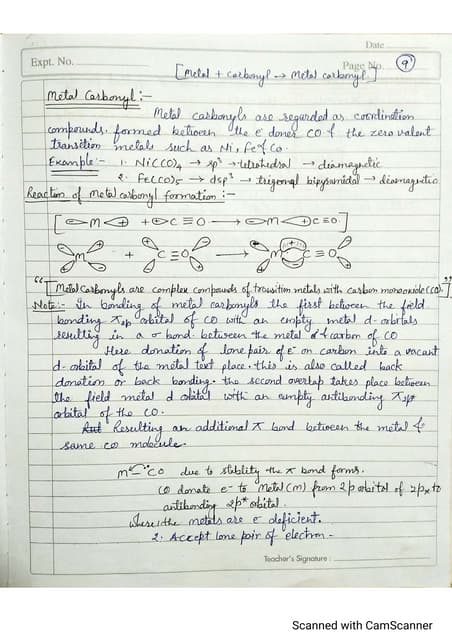 Date
Expt. No.
Page No. 9
[Metal + Carbonyl → Metal carbonyl]
Metal Carbonyl:-
Metal carbonyls are regarded as coordination
compounds. formed between the e⁻ doner CO & the zero valent
transition metals such as Ni, Fe & Co.
Example:- 1. Ni(CO)4 → sp³ → tetrahedral → diamagnetic
2. Fe(CO)5 → dsp³ → trigonal bipyramidal → diamagnetic
Reaction of Metal carbonyl formation:-
M + C≡O → M C≡O
M + C≡O → M C≡O
"[Metal Carbonyls are complex compounds of transition metals with carbon monoxide (CO)]"
Note:- In bonding of metal carbonyls the first between the field
bonding πsp orbital of CO with an empty metal d-orbitals
resulting in a σ bond between the metal & carbon of CO
Here donation of lone pair of e⁻ on carbon into a vacant
d-orbital of the metal text place. this is also called back
donation or back bonding. the second overlap takes place between
the field metal d orbital with an empty antibonding πsp*
orbital of the CO.
Resulting an additional π bond between the metal &
same co molecule.
M CO due to stablity the π bond forms.
CO donate e⁻ to Metal (M) from 2p orbital of 2px to
antibonding 2p* orbital.
Where the metals are e⁻ deficient.
2. Accept lone pair of electron -
Teacher's Signature :
Scanned with CamScanner